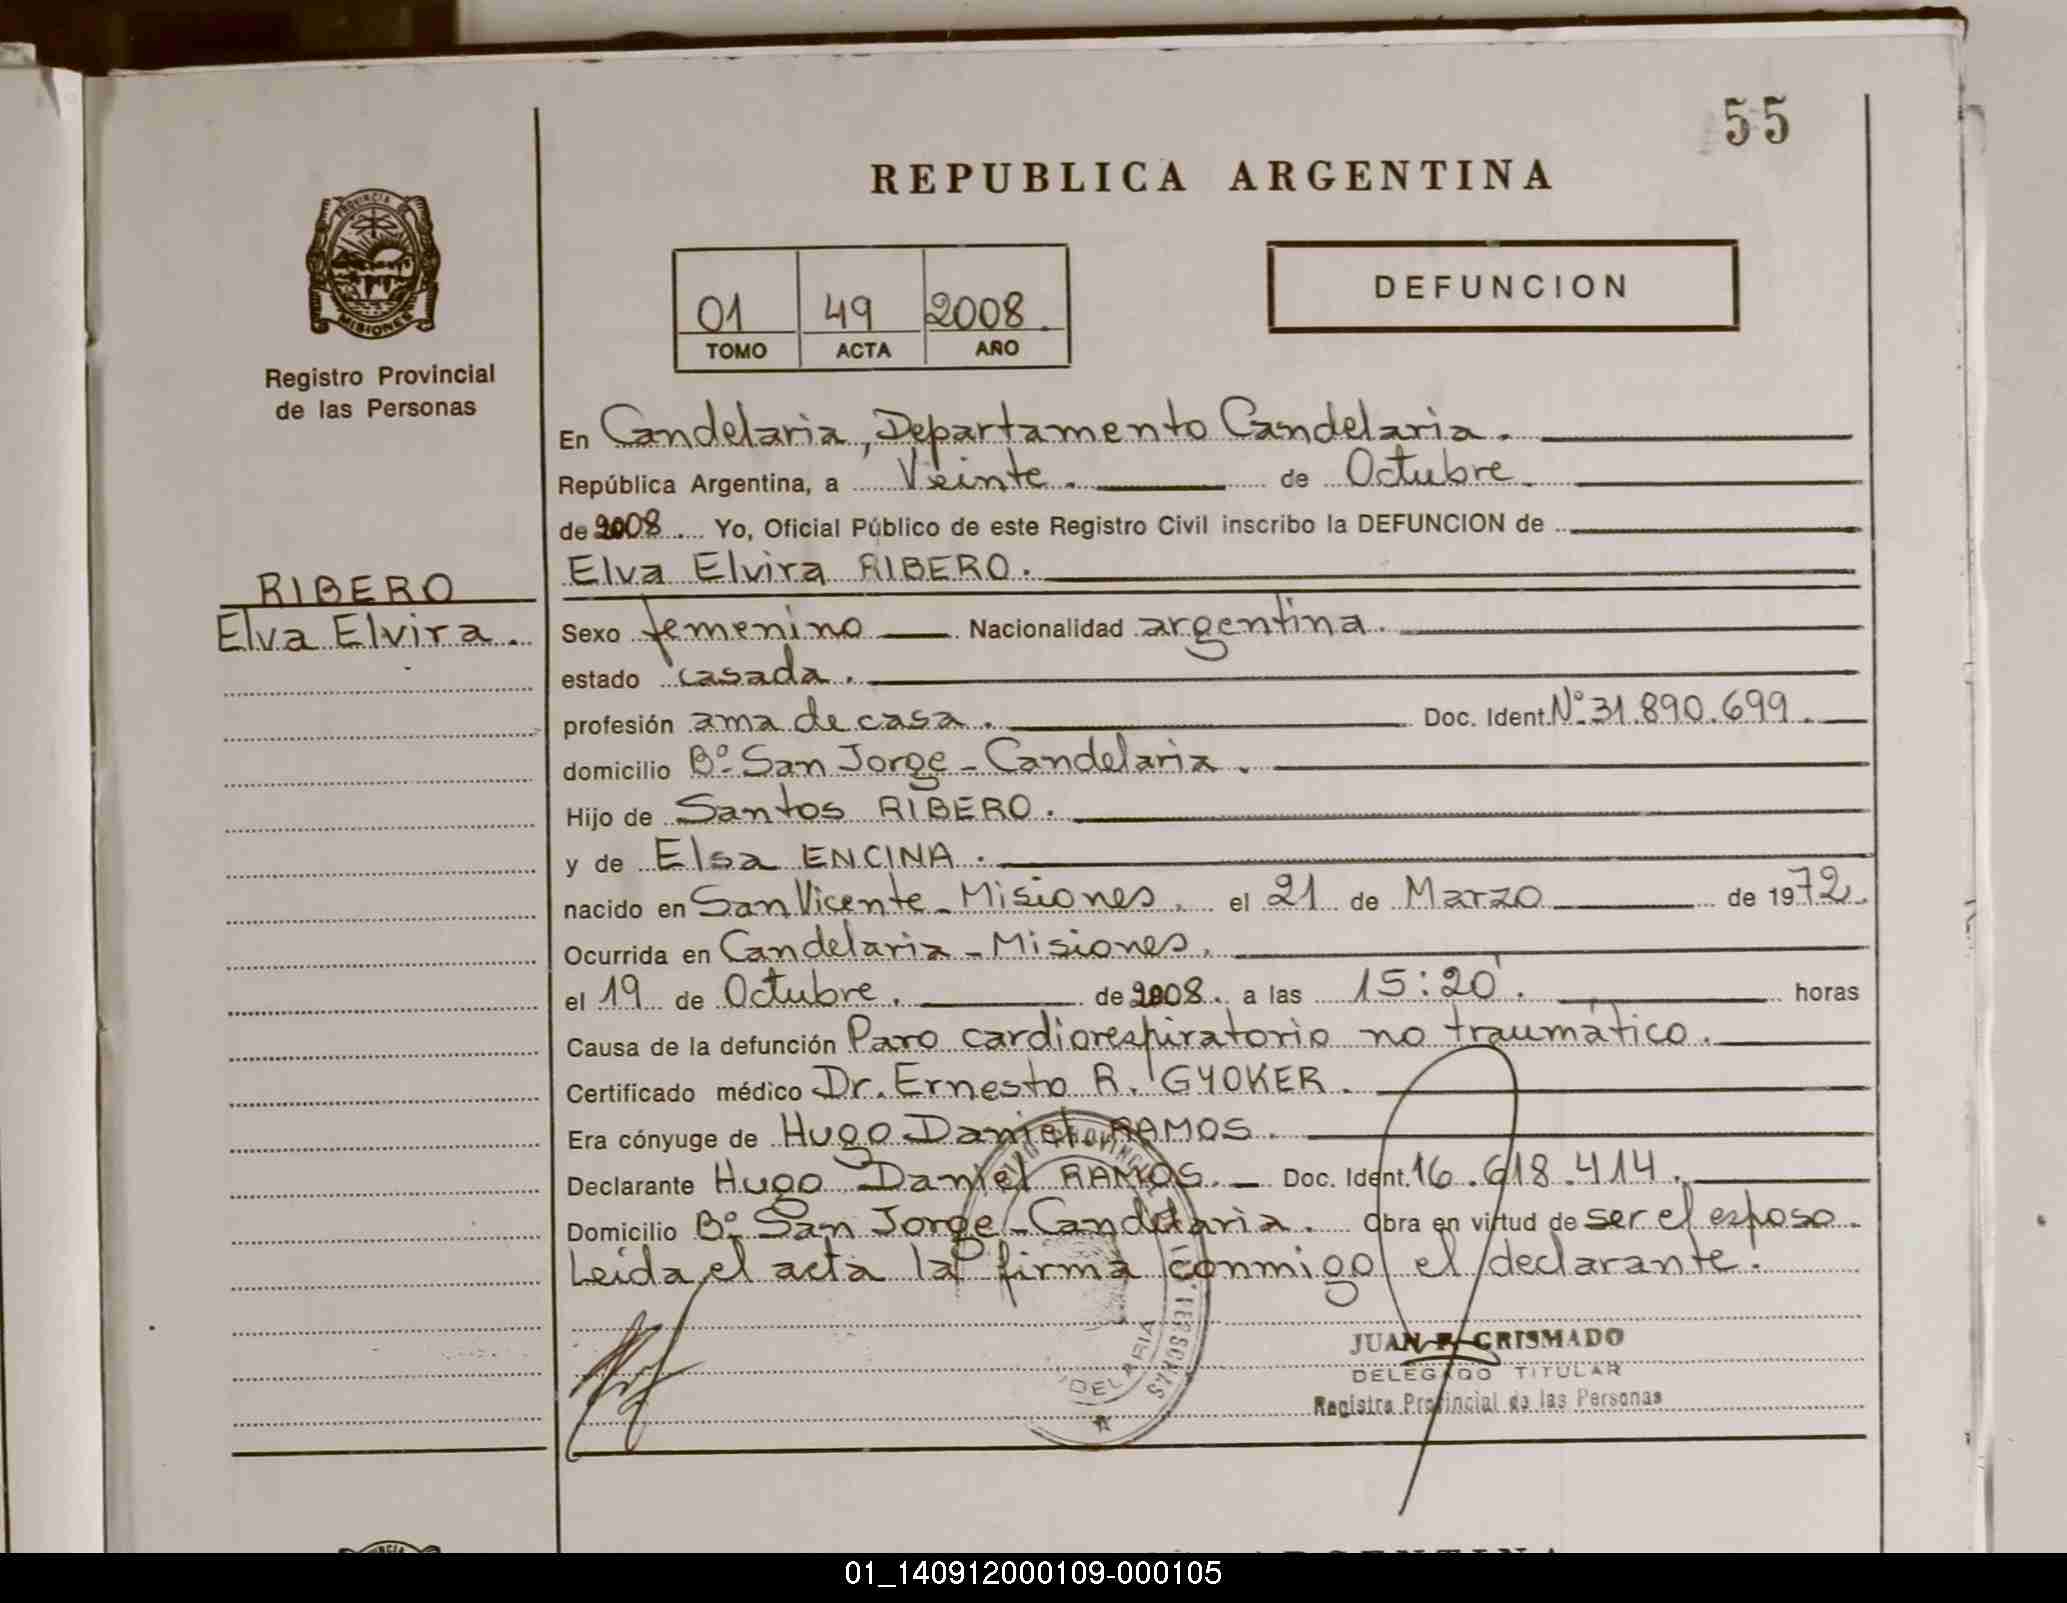 55
REPUBLICA ARGENTINA
PROVINCIA DE
MISIONES
Registro Provincial
de las Personas
01 49 2008.
TOMO ACTA AÑO
DEFUNCION
En Candelaria, Departamento Candelaria.
República Argentina, a Veinte. de Octubre.
de 2008. Yo, Oficial Público de este Registro Civil inscribo la DEFUNCION de
RIBERO
Elva Elvira.
Elva Elvira RIBERO.
Sexo femenino Nacionalidad argentina.
estado casada.
profesión ama de casa. Doc. Ident. Nº 31.890.699.
domicilio Bº San Jorge - Candelaria.
Hijo de Santos RIBERO.
y de Elsa ENCINA.
nacido en San Vicente - Misiones. el 21 de Marzo de 1972.
Ocurrida en Candelaria - Misiones.
el 19 de Octubre. de 2008. a las 15:20'. horas
Causa de la defunción Paro cardiorespiratorio no traumático.
Certificado médico Dr. Ernesto R. GYOKER.
Era cónyuge de Hugo Daniel RAMOS.
Declarante Hugo Daniel RAMOS. Doc. Ident. 16.618.414.
Domicilio Bº San Jorge - Candelaria. Obra en virtud de ser el esposo.
Leída el acta la firma conmigo el declarante.
JUAN F. GRISMADO
DELEGADO TITULAR
Registro Provincial de las Personas
01_140912000109-000105